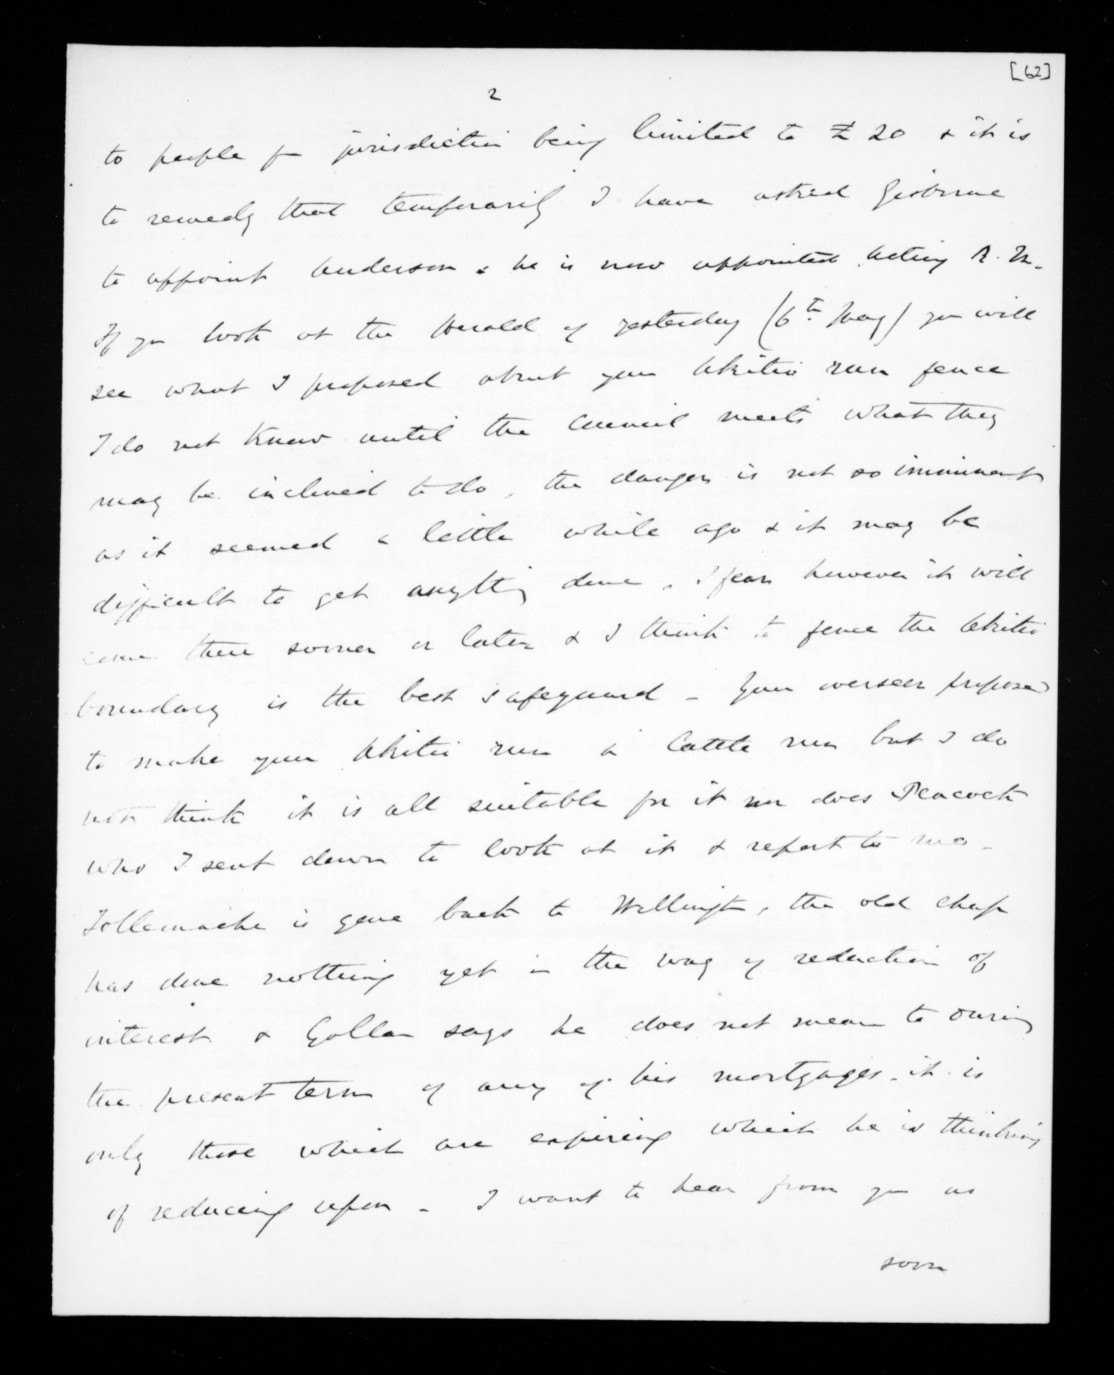 [62]
2
to people for jurisdiction being limited to £20 & it is
to remedy that temporarily I have asked Gisborne
to appoint Anderson & he is now appointed Acting R.M.
If you look at the Herald of yesterday (6th May) you will
see what I proposed about your Akitio run fence
I do not know until the Council meets what they
may be inclined to do, the danger is not so imminent
as it seemed a little while ago & it may be
difficult to get anything done. I fear however it will
come there sooner or later & I think to fence the Akitio
boundary is the best safeguard - Your overseer proposed
to make your Akitio run a Cattle run but I do
not think it is all suitable for it nor does Peacock
who I sent down to look at it & report to me -
Tollemache is gone back to Wellington, the old chap
has done nothing yet in the way of reduction of
interest & Gollan says he does not mean to during
the present term of any of his mortgages - it is
only those which are expiring which he is thinking
of reducing upon - I want to hear from you as
soon